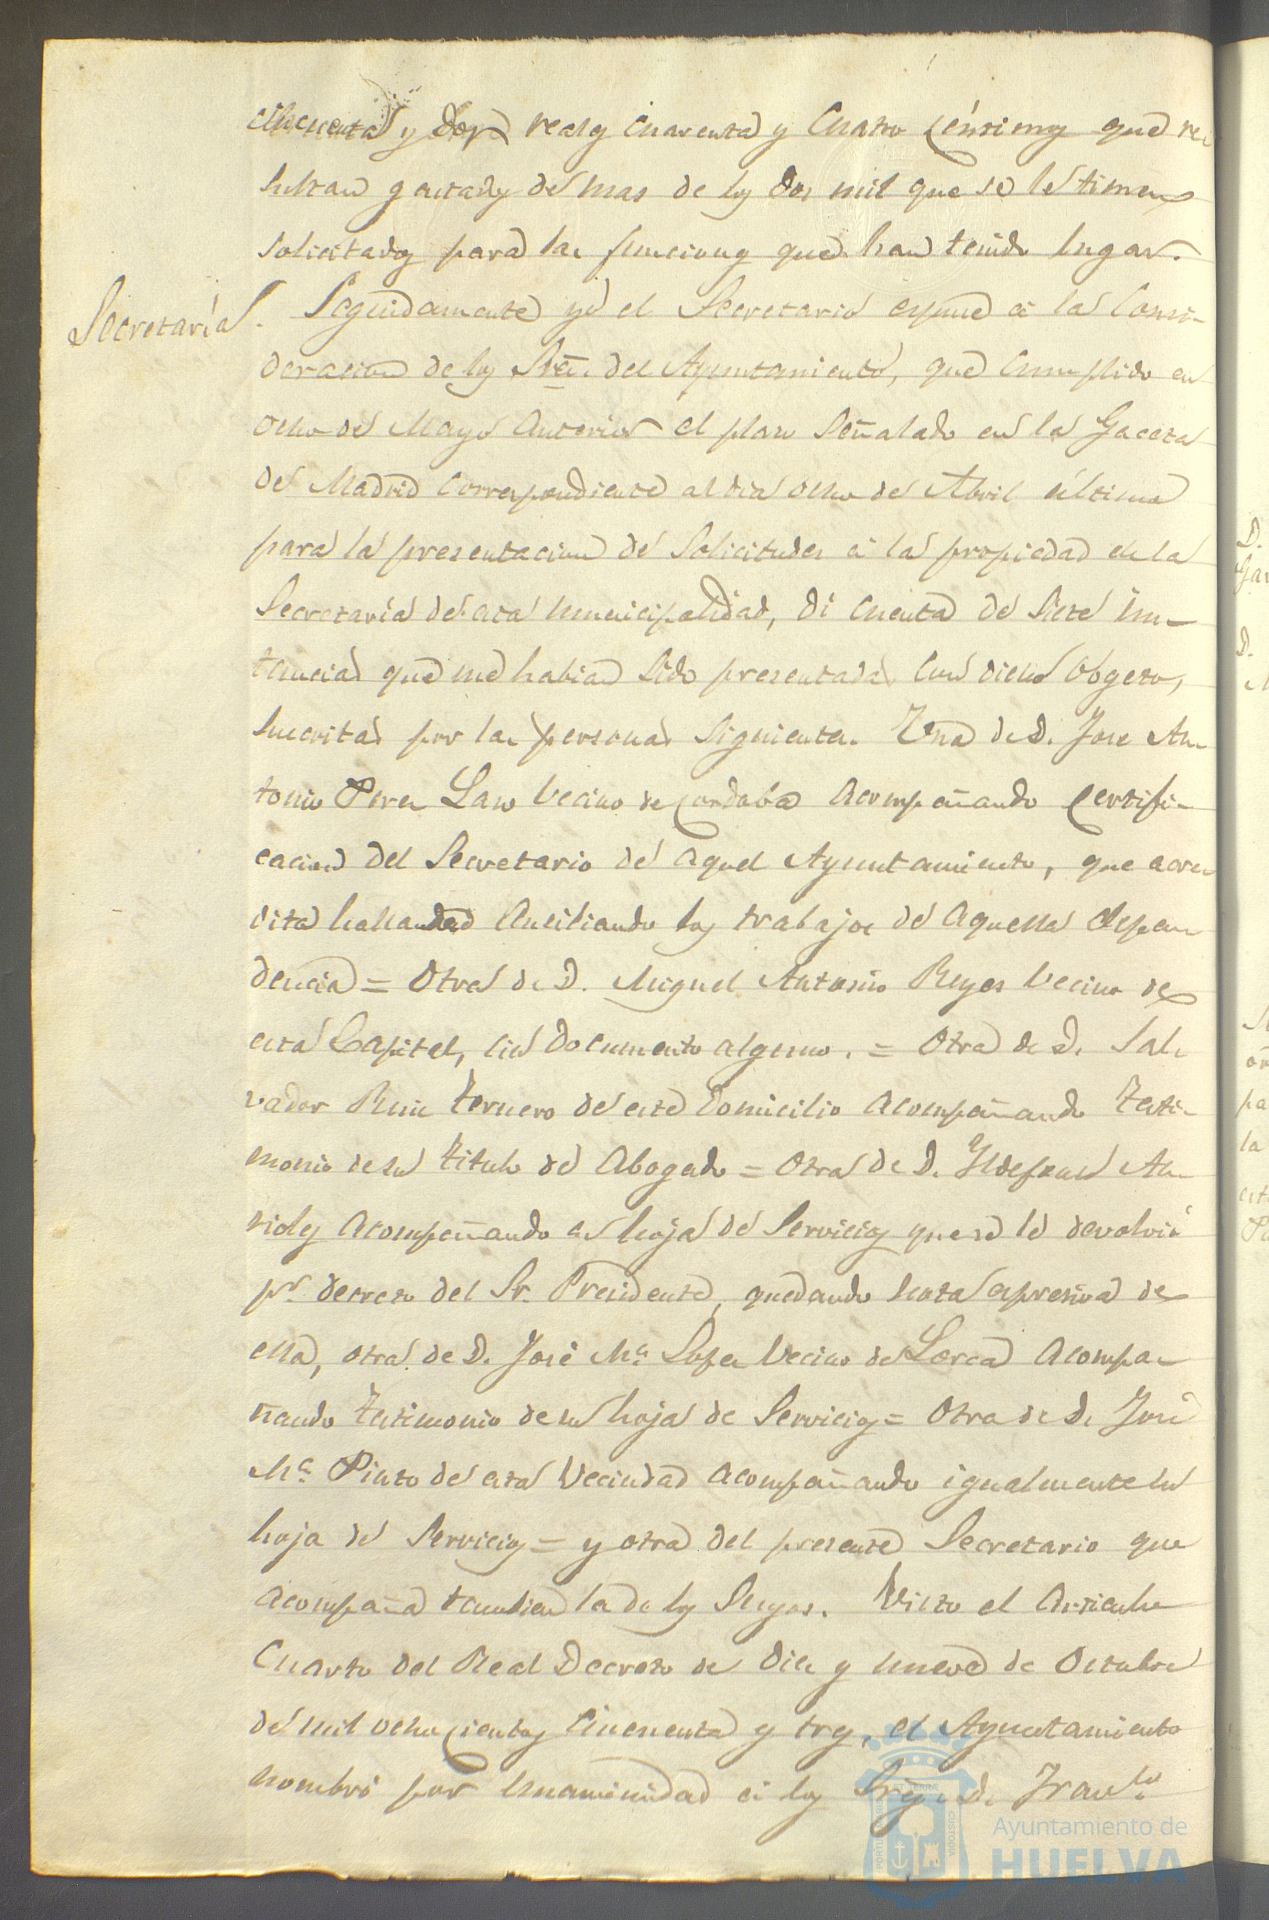 cincuenta y dos reales cuarenta y cuatro céntimos que re-
sultan gastados de mas de los dos mil que se les tienen
solicitados para las funciones que han tenido lugar.
Secretaría. Seguidamente yó el Secretario espuse á la Consi-
deracion de los Sres. del Ayuntamiento, que cumplido en
ocho de Mayo anterior el plazo señalado en la Gaceta
de Madrid correspondiente al dia ocho de Abril último
para la presentacion de solicitudes á la propiedad de la
Secretaría de esta municipalidad, dí cuenta de siete ins-
tancias que me habian sido presentadas con dicho obgeto,
suscritas por las personas siguientes. Una de D. Jose An-
tonio Perez Laso vecino de Cordoba acompañando certifi-
cacion del Secretario de aquel Ayuntamiento, que acre-
dita hallandose ausiliando los trabajos de aquella depen-
dencia = Otra de D. Miguel Antonio Reyes vecino de
esta Capital, sin documento alguno. = Otra de D. Sal-
vador Ruiz Ternero de este domicilio acompañando testi-
monio de su titulo de Abogado = Otra de D. Yldefonso
acompañando su hoja de servicios que se le devolvió
pr. decreto del Sr. Presidente, quedando nota espresiva de
ella, otra de D. José Ma. Lopez vecino de Lorca acompa-
ñando testimonio de su hoja de servicios = Otra de D. José
Ma. Pinto de esta vecindad acompañando igualmente su
hoja de servicios = y otra del presente Secretario que
acompaña tambien la de los suyos. Visto el articulo
cuarto del Real Decreto de diez y nueve de Octubre
de mil ochocientos cincuenta y tres, el Ayuntamiento
nombró por unanimidad á los Sres. D. Franco.
Ayuntamiento de
HUELVA